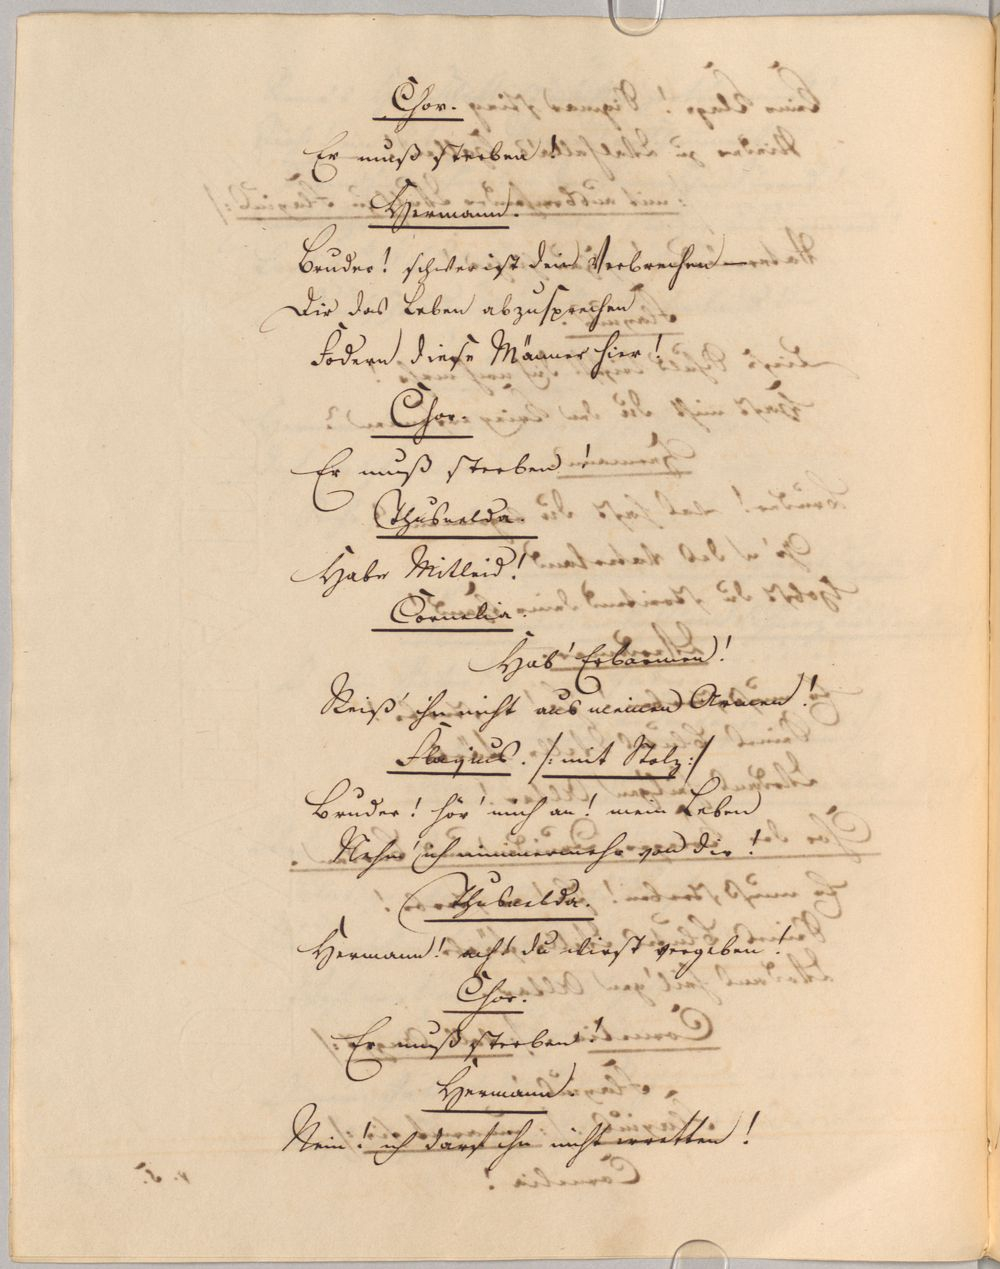 Chor.
Er muß sterben!
Hermann.
Bruder! schwer ist dein Verbrechen —
Dir das Leben abzusprechen
Fodern diese Männer hier!
Chor.
Er muß sterben!
Thusnelda.
Habe Mitleid!
Cornelia.
Hab' Erbarmen!
Reiß' ihn nicht aus meinen Armen!
Flavius. /: mit Stolz :/
Bruder! hör' mich an! mein Leben
Nehm' ich nimmermehr von dir!
Thusnelda.
Hermann! ach! du wirst vergeben!
Chor.
Er muß sterben!
Hermann.
Nein! ich darf ihn nicht erretten!